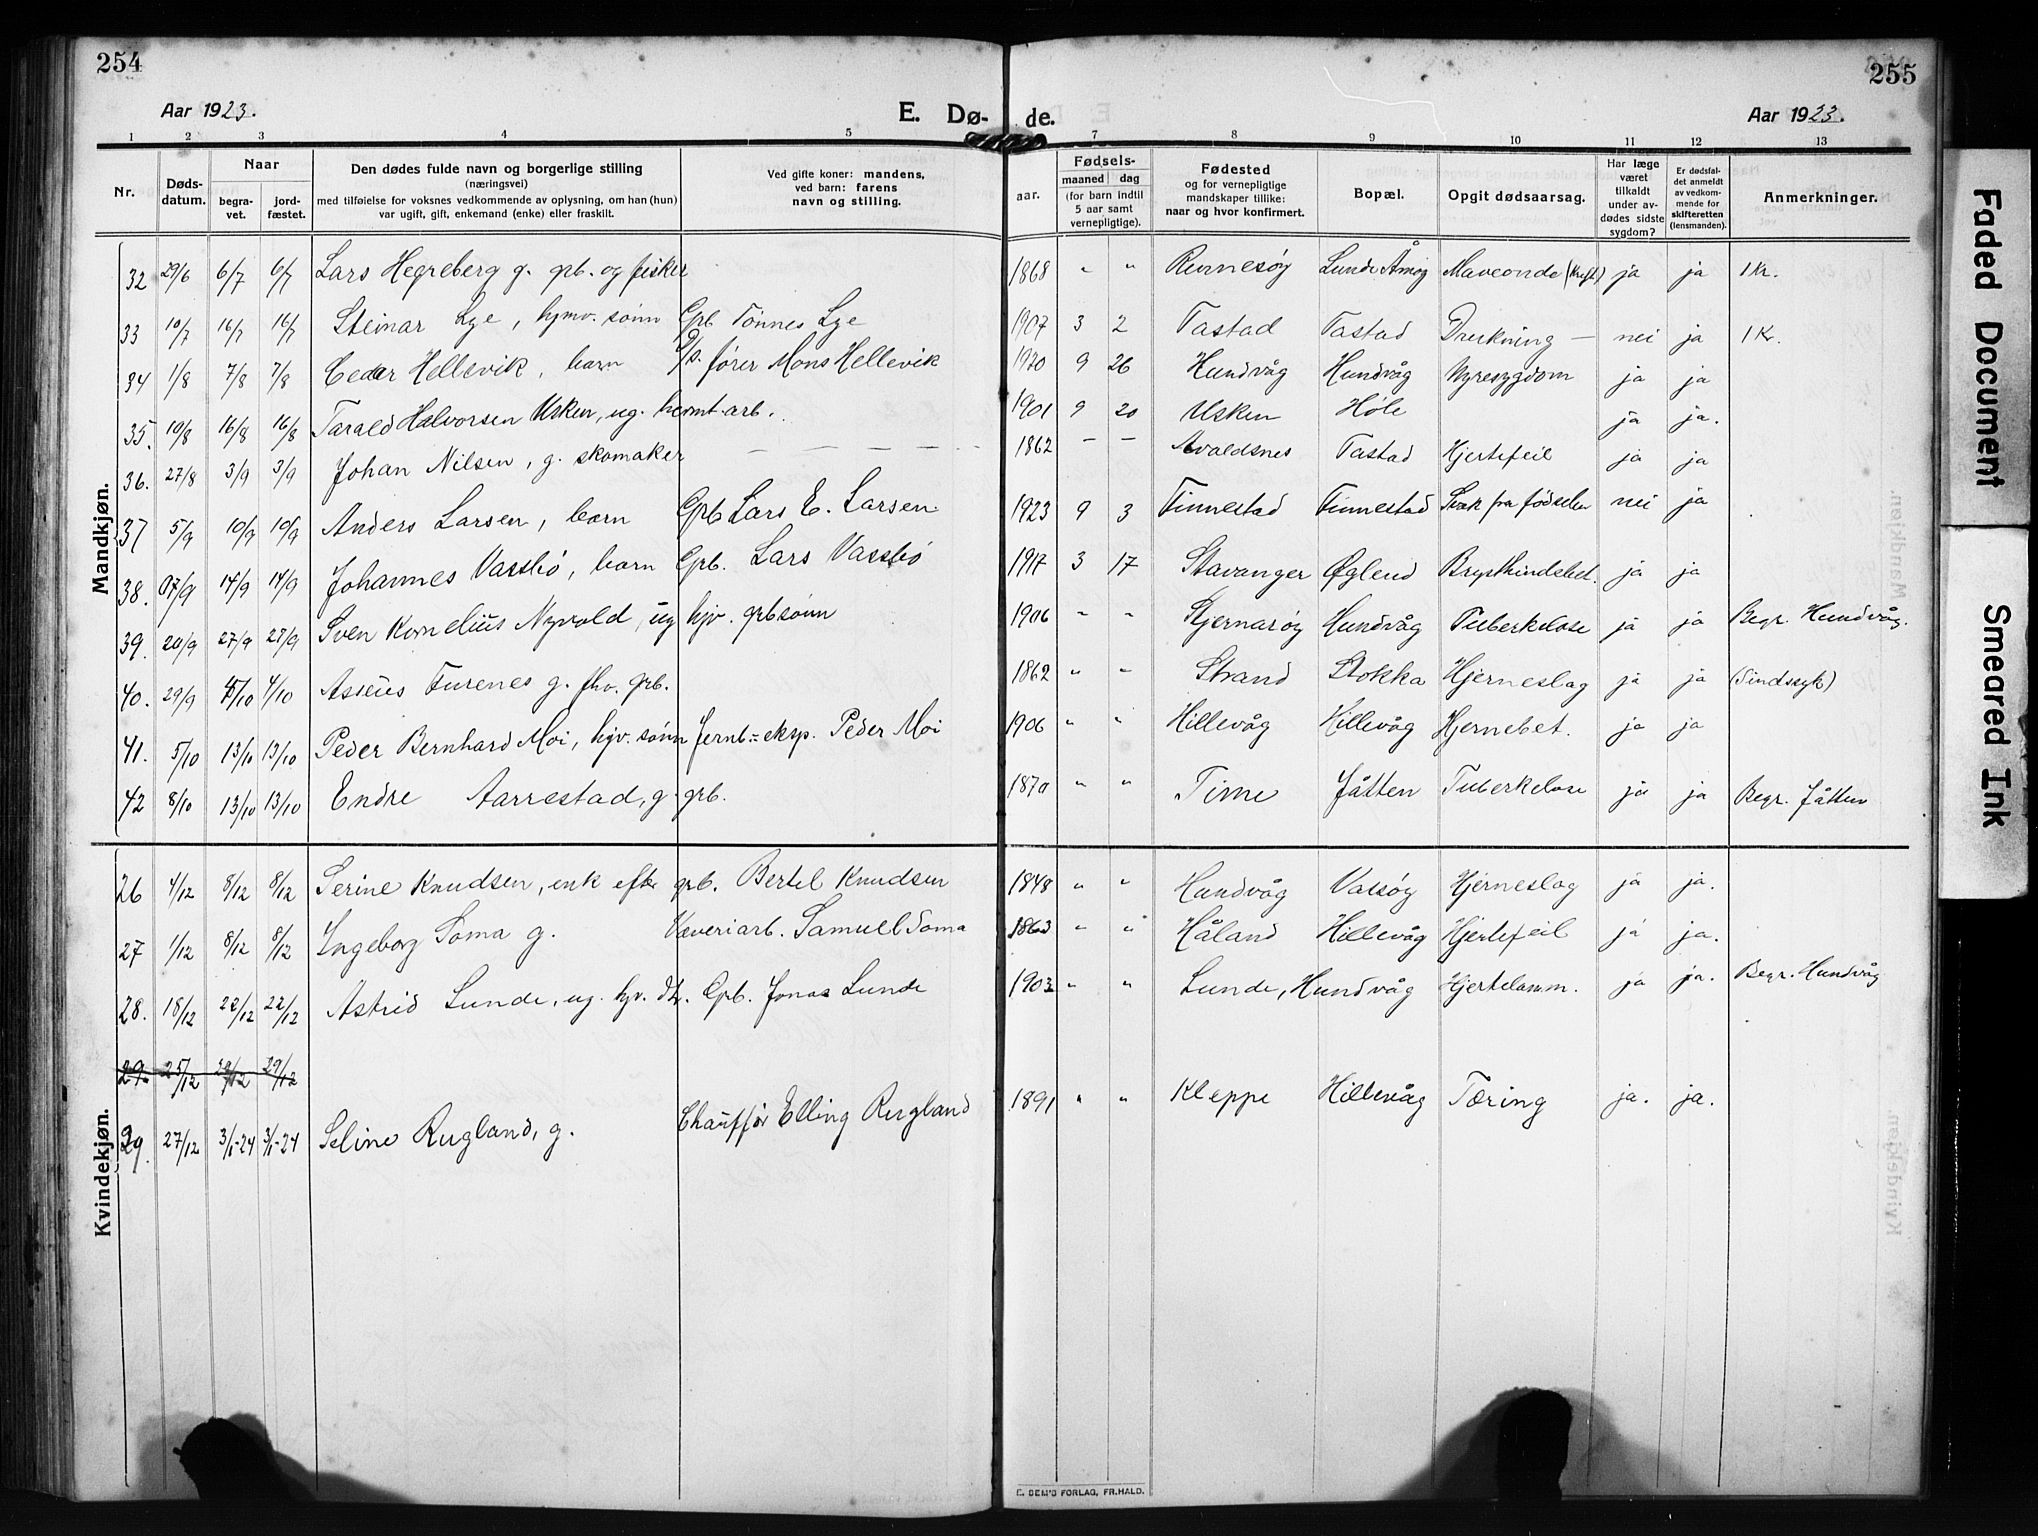 254
Aar 1923.
E. Dø-
1 2 3 4 5
Nr.
Døds-
datum.
Naar
begra-
vet.
jord-
fæstet.
Den dødes fulde navn og borgerlige stilling
(næringsvei)
med tilføielse for voksnes vedkommende av oplysning, om han (hun)
var ugift, gift, enkemand (enke) eller fraskilt.
Ved gifte koner: mandens,
ved barn: farens
navn og stilling.
Mandkjøn.
32 29/6 6/7 6/7 Lars Hegreberg g. grb. og fisker
33 10/7 16/7 16/7 Steinar Lye, hjmv. sønn Grb. Tønnes Lye
34 1/8 7/8 7/8 Hellevik, barn fører Mons Hellevik
35. 10/8 16/8 16/8 Tarald Halvorsen Usken, ug. arb.
36. 27/8 3/9 3/9 Johan Nilsen, g. skomaker
37 5/9 10/9 10/9 Anders Larsen, barn Grb Lars E. Larsen
38. 07/9 14/9 14/9 Johannes Vassbø, barn Grb. Lars Vassbø
39. 20/9 27/9 28/9 Sven Kornelius Nyvold, ug hjv. grb sønn
40. 29/9 4/10 Asseus Furenes g. fhv. grb.
41. 5/10 13/10 13/10 Peder Bernhard Moi, hjv. sønn jernb.=eksp. Peder Moi
42 8/10 13/10 13/10 Endre Aarrestad, g. grb.
Kvindekjøn.
26 4/12 8/12 8/12 Serine Knudsen, enk efter grb. Bertel Knudsen
27 1/12 8/12 8/12 Ingeborg Soma g. Væveriarb. Samuel Soma
28. 18/12 22/12 22/12 Astrid Lunde, ug. hjv. dt. Grb. Jonas Lunde
29. 25/12 29/12 29/12
29. 27/12 3/1-24 3/1-24 Seline Rugland, g. Chauffør Elling Rugland
255
de.
Aar 1923.
7 8 9 10 11 12 13
aar.
Fødsels-
maaned dag
(for barn indtil
5 aar samt
vernepligtige).
Fødested
og for vernepligtige
mandskaper tillike:
naar og hvor konfirmert.
Bopæl.
Opgit dødsaarsag.
Har læge
været
tilkaldt
under av-
dødes sidste
sygdom?
Er dødsfal-
det anmeldt
av vedkom-
mende for
skifteretten
(lensmanden).
Anmerkninger.
1868 " " Rennesøy Lunde Åmøy Maveonde (kreft) ja ja 1 Kr.
1907 3 2 Tastad Tastad Drukning — nei ja 1 Kr.
1920 9 26 Hundvåg Hundvåg Nyresygdom ja ja
1901 9 20 Usken Høle ja ja.
1862 — — Avaldsnes Tastad Hjertefeil ja ja
1923 9 3 Finnestad Finnestad Svak fra fødselen nei ja
1917 3 17 Stavanger Øglend Brysthindebet. ja ja
1906 " " Sjernarøy Hundvåg Tuberkelose ja ja Begr. Hundvåg.
1862 " " Strand Stokka Hjerneslag ja ja (Sindssyk)
1906 " " Hillevåg Hillevåg Hjernebet. ja ja
1870 " " Time Jåtten Tuberkelose ja ja Begr. Jåtten
1848 " " Hundvåg Vassøy Hjerneslag ja ja.
1863 " " Håland Hillevåg Hjertefeil ja ja.
1903 " " Lunde, Hundvåg Hjertelamm. ja ja. Begr. Hundvåg
1891 " " Kleppe Hillevåg Tæring ja. ja.
E. SEM'S FORLAG, FR.HALD.
Faded Document
Smeared Ink